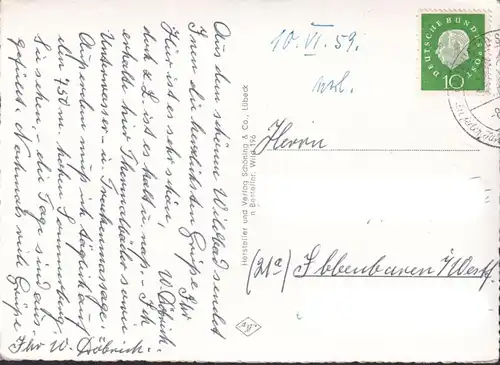 Aus dem schönen Wildbad sendet
Ihnen die herzlichsten Grüße Ihr
Hier ist es sehr schön, W. Döbrich
doch z. Z. ist es kalt u. naß. – Ich
erhalte hier Thermalbäder sowie
Unterwasser- u. Trockenmassage.
Außerdem muß ich täglich auf
den 750 m. hohen Sommerberg
gehen, die Tage sind aus-
gefüllt. Nochmals viele Grüße
Ihr W. Döbrich.
Hersteller und Verlag Schöning & Co., Lübeck
n Bestellnr. Wild 196
10. VI. 59.
Herrn
(21a) Ibbenbüren i/Westf.
DEUTSCHE BUNDESPOST
10